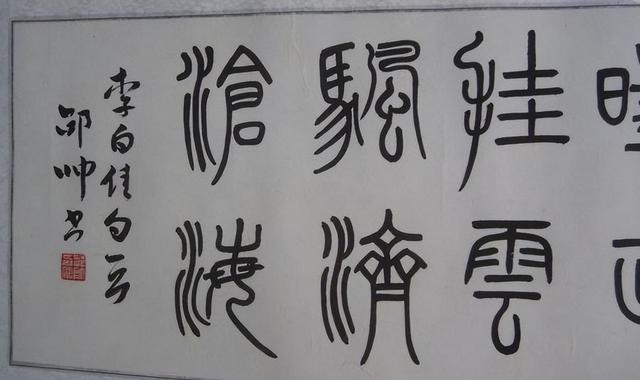 挂雲
颿濟
滄海
李白佳句云
邵帅书